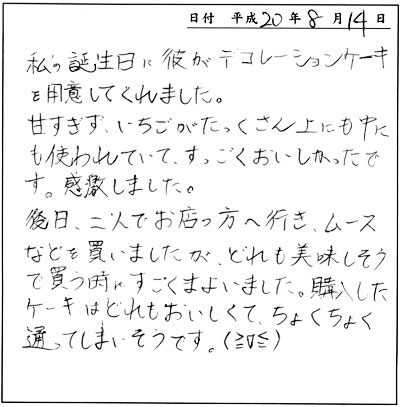 日付 平成20年8月14日
私の誕生日に彼がデコレーションケーキ
を用意してくれました。
甘すぎず、いちごがたっくさん上にも中に
も使われていて、すっごくおいしかったで
す。感激しました。
後日、二人でお店の方へ行き、ムース
などを買いましたが、どれも美味しそう
で買う時にすごくまよいました。購入した
ケーキはどれもおいしくて、ちょくちょく
通ってしまいそうです。(≧∇≦)